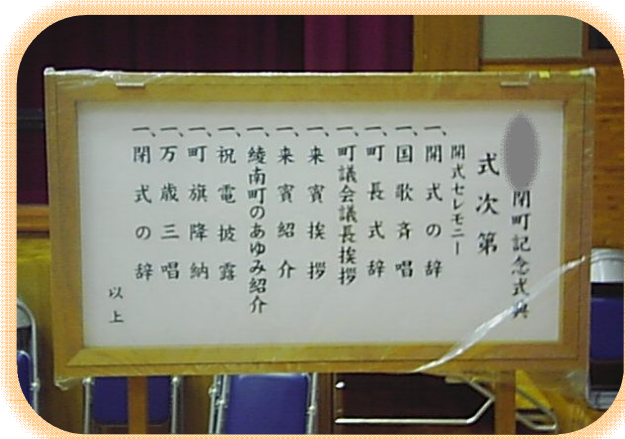 閉町記念式典
式次第
開式セレモニー
一、開式の辞
一、国歌斉唱
一、町長式辞
一、町議会議長挨拶
一、来賓挨拶
一、来賓紹介
一、綾南町のあゆみ紹介
一、祝電披露
一、町旗降納
一、万歳三唱
一、閉式の辞
以上